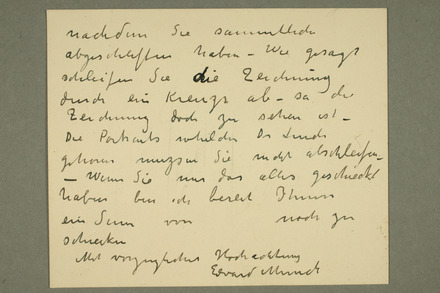 nachdem Sie sammtliche
abgeschliffen haben – Wie gesagt
schleifen Sie die Zeichnung
durch ein Kreuz ab – so die
Zeichnung doch zu sehen ist –
Die Portraits Dr Linde
gehoren Sie nicht abschleifen –
– Wenn Sie mir das alles geschickt
haben bin ich bereit Ihnen
ein von noch zu
schicken
Mit vorzuglicher Hochachtung
Edvard Munch